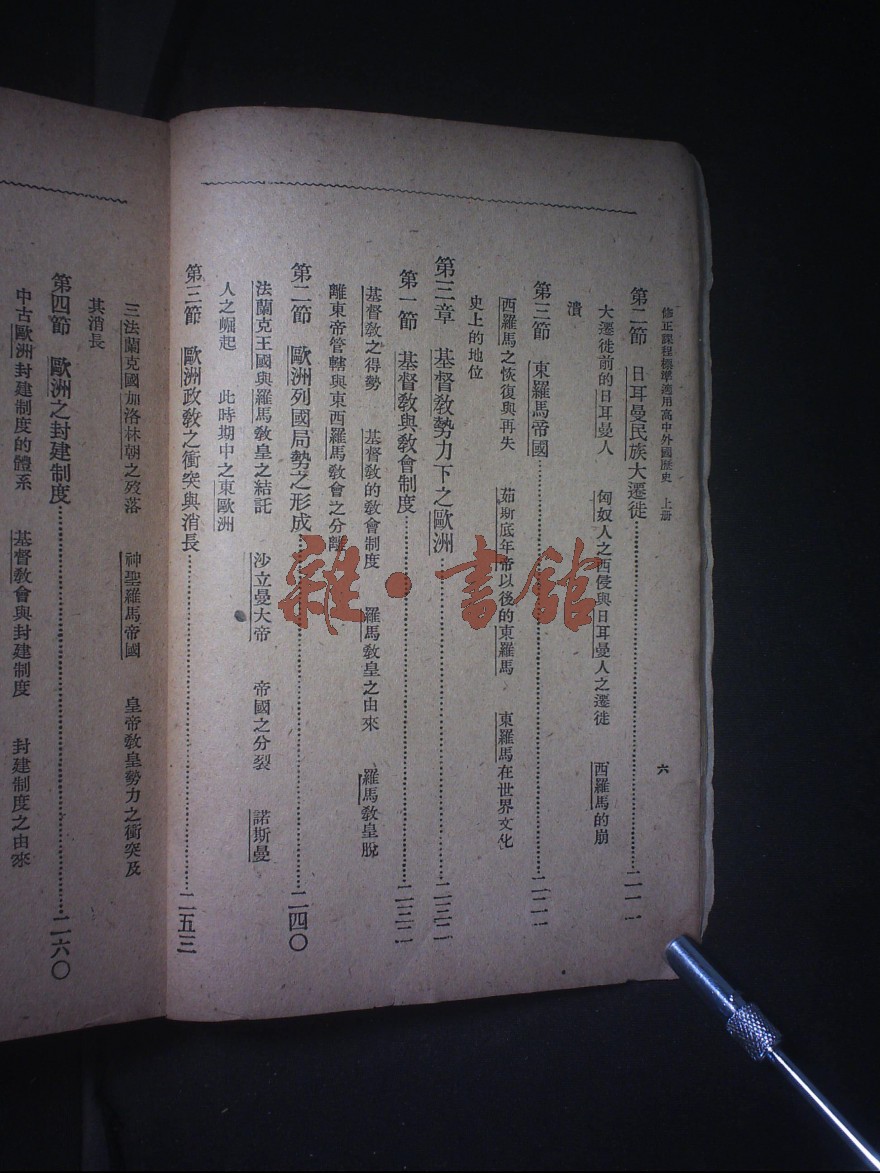 修正課程標準適用高中外國歷史　上册　六
第二節　日耳曼民族大遷徙…………二一一
大遷徙前的日耳曼人　匈奴人之西侵與日耳曼人之遷徙　西羅馬的崩
潰
第三節　東羅馬帝國…………二二一
西羅馬之恢復與再失　茹斯底年帝以後的東羅馬　東羅馬在世界文化
史上的地位
第三章　基督敎勢力下之歐洲…………二三二
第一節　基督敎與敎會制度…………二三二
基督敎之得勢　基督敎的敎會制度　羅馬敎皇之由來　羅馬敎皇脫
離東帝管轄與東西羅馬敎會之分離
第二節　歐洲列國局勢之形成…………二四〇
法蘭克王國與羅馬敎皇之結託　沙立曼大帝　帝國之分裂　諾斯曼
人之崛起　此時期中之東歐洲
第三節　歐洲政敎之衝突與消長…………二五三
三法蘭克國加洛林朝之歿落　神聖羅馬帝國　皇帝敎皇勢力之衝突及
其消長
第四節　歐洲之封建制度…………二六〇
中古歐洲封建制度的體系　基督敎會與封建制度　封建制度之由來
雜·書館